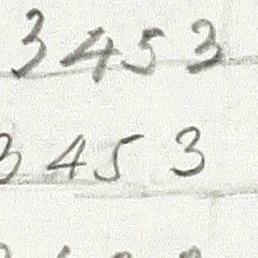 3453
3453